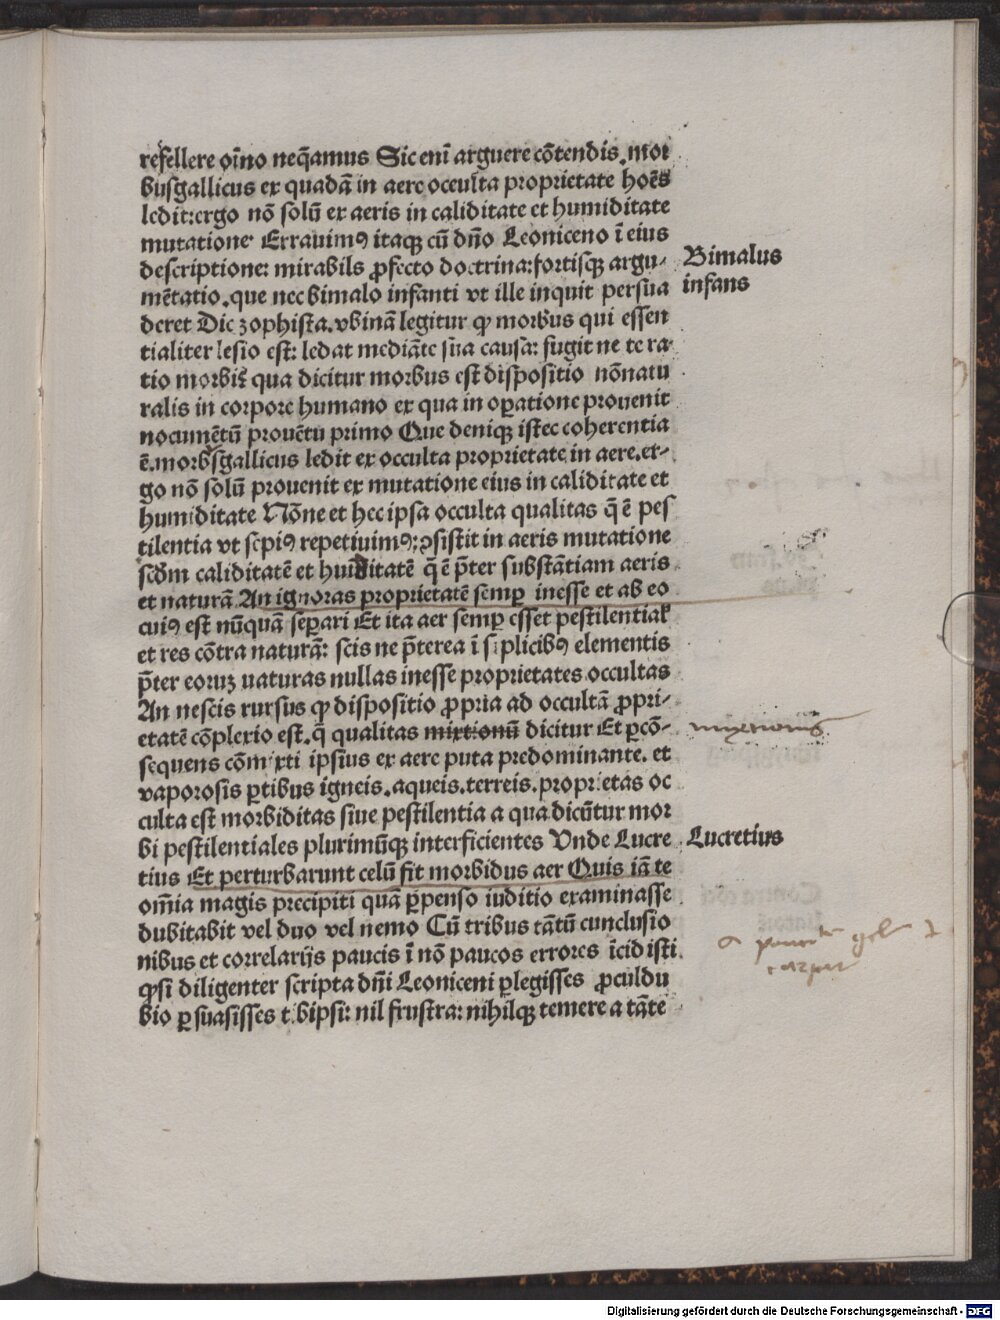 refellere oīno neq̄amus Sic enī arguere cōtendis. moꝛ
busgallicus ex quadā in aere occulta proprietate hoēs
ledit:ergo nō solū ex aeris in caliditate et humiditate
mutatione Erravimꝰ itaqꝫ cū dño Leoniceno ī eius
descriptione: mirabils ꝓfecto doctrina:fortisqꝫ argu-
Bimalus
mētatio.que nec bimalo infanti vt ille inquit persua
infans
deret Dic zophista.vbinā legitur ꝙ morbus qui essen
tialiter lesio est: ledat mediāte sua causa: fugit ne te ra
tio morbi qua dicitur morbus est dispositio nōnatu
ralis in corpore humano ex qua in oꝑatione prouenit
nocumētū prouētu primo Que deniqꝫ istec coherentia
ē.morbsgallicus ledit ex occulta proprietate in aere.er-
go nō solū prouenit ex mutatione eius in caliditate et
humiditate Nōne et hec ipsa occulta qualitas q̄ ē pes
tilentia vt sepiꝰ repetiuimꝰ:ꝯsistit in aeris mutatione
scdm caliditatē et humiditatē q̄ ē p̄ter substātiam aeris
et naturā An ignoras proprietatē semꝑ inesse et ab eo
cuiꝰ est nūquā seꝑari Et ita aer semꝑ esset pestilentialꝭ
et res cōtra naturā: scis ne p̄terea ī siplicibꝰ elementis
p̄ter eoruꝫ naturas nullas inesse proprietates occultas
An nescis rursus ꝙ dispositio ꝓpria ad occultā ꝓpri-
etatē cōplexio est.q̄ qualitas mixtionū dicitur Et ꝑcō-
mixtionis
sequens cōmixti ipsius ex aere puta predominante. et
vaporosis ꝑtibus igneis.aqueis.terreis.proprietas oc
culta est morbiditas siue pestilentia a qua dicūtur mor
bi pestilentiales plurimūqꝫ interficientes Vnde Lucre
Lucretius
tius Et perturbarunt celū fit morbidus aer Quis iā te
omīa magis precipiti quā ꝑpenso iuditio examinasse
dubitabit vel duo vel nemo Cū tribus tātū cunclusio
nibus et correlarijs paucis ī nō paucos errores īcidisti
ꝙsi diligenter scripta dñi Leoniceni ꝑlegisses ꝓculdu
bio ꝑsuasisses tibipsi: nil frustra: nihilqꝫ temere a tāte
Digitalisierung gefördert durch die Deutsche Forschungsgemeinschaft - DFG